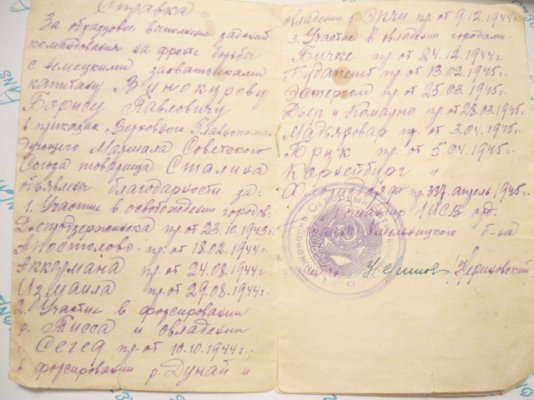 Справка
За образцовое выполнение заданий
командования на фронте борьбы
с немецкими захватчиками
капитану Винокурову
Борису Павловичу
в приказах Верховного Главнокоман-
дующего Маршала Советского
Союза товарища Сталина
объявлены благодарности за:
1. Участие в освобождении городов:
Днепродзержинска пр от 23.10.1943г.
Апостолово пр. от 18.02.1944г.
Аккермана пр от 24.08.1944г.
Измаила пр. от 29.08.1944г.
2. Участие в форсировании
р. Тисса и овладении
г. Сегед пр. от 10.10.1944г.;
в форсировании р. Дунай и
овладении г. пр. от 9.12.1944г.
3. Участие в овладении городами:
Бичке пр. от 24.12.1944г.
Будапешт пр. от 13.02.1945г.
Эстергом пр. от 25.03.1945г.
и Комарно пр от 28.03.1945г.
Мадьяровар пр. от 3.04.1945г.
Брук пр. от 5.04.1945г.
Корнейбург и
пр. 337 апрель 1945г.